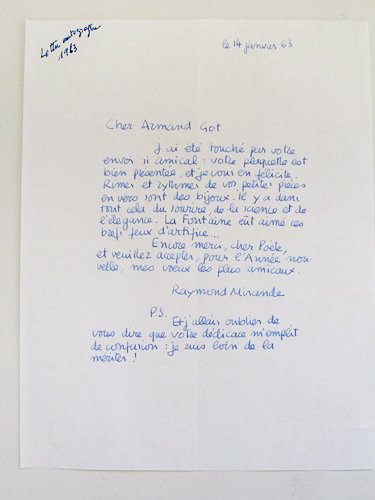 Lettre autographe
1963
le 14 janvier 63
Cher Armand Got
J'ai été touché par votre
envoi si amical : votre plaquette est
bien présentée, et je vous en félicite.
Rimes et rythmes de vos petites pièces
en vers sont des bijoux. Il y a dans
tout cela du sourire, de la science et de
l'élégance. La Fontaine eût aimé ces
brefs feux d'artifice...
Encore merci, cher Poète,
et veuillez accepter, pour l'Année nou-
velle, mes vœux les plus amicaux.
Raymond Mirande
P.S.
Et j'allais oublier de
vous dire que votre dédicace m'emplit
de confusion : je suis loin de la
mériter !